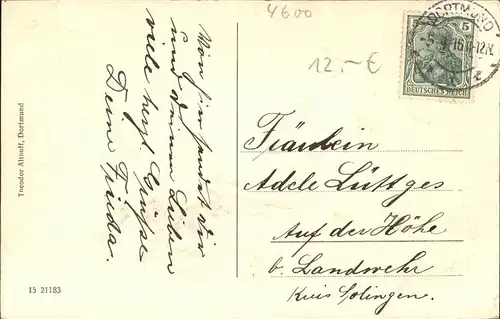 4600
12.-€
DORTMUND
5 5
-5.9.16.11-12N.
DEUTSCHES REICH
Von hier sendet dir
und deinen Lieben
viele herzl. Grüße
Deine Frieda.
Fräulein
Adele Lüttges
Auf der Höhe
b. Landwehr
Kreis Solingen.
Theodor Althoff, Dortmund
15 21183